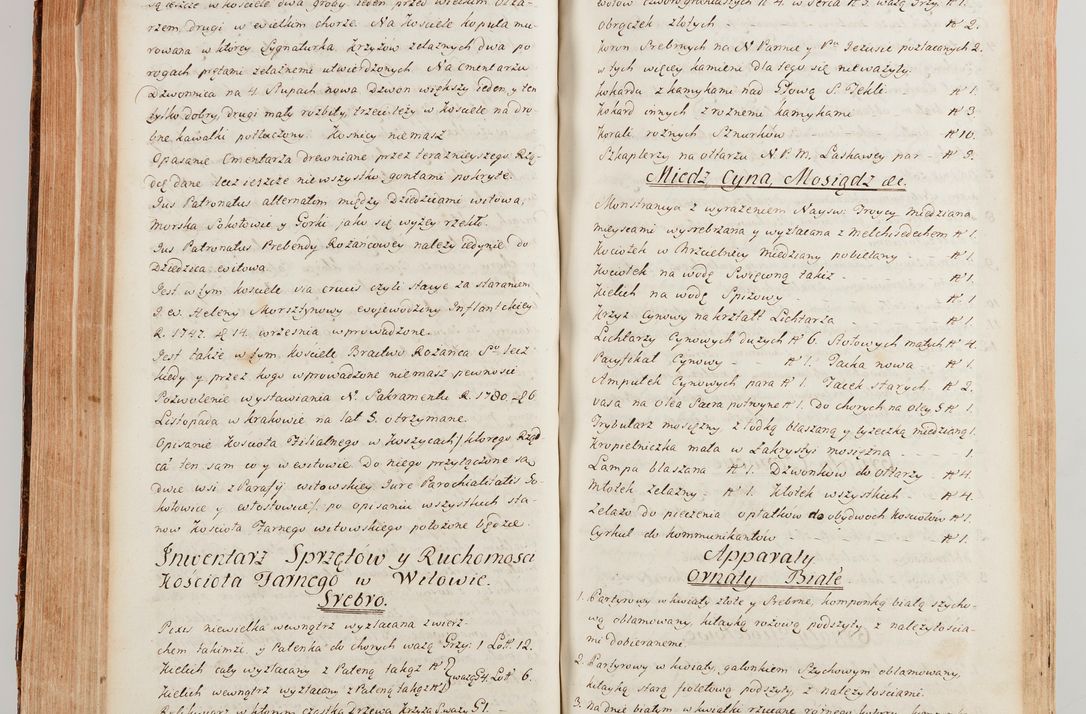 są jeszcze w kościele dwa groby ieden przed wielkim Ołta-
rzem drugi w wielkim chorze. Na Kosciele kopuła mu-
rowana w ktorey Sygnaturka. Krzyżow żelaznych dwa po
rogach prętami żelaznemi utwierdzonych. Na Cmentarzu
Dzwonnica na 4. Słupach nowa Dzwon większy ieden y ten
tylko dobry, drugi mały rozbity, trzeci leży w Kosciele na dro-
bne kawałki potłuczony. Kosnicy niemasz
Opasanie Cmentarza drewniane przez teraznieyszego Rzą-
dcę dane lecz ieszcze nie wszystko gontami pokryte.
Jus Patronatus alternatim między Dziedzicami Witowa,
Morska, Sokołowic y Gorki jako się wyżey rzekło.
Jus Patronatus Prebendy Rożancowey należy iedynie do
Dziedzica Witowa.
Jest w tym kosciele via crucis czyli stacye za staraniem
J. W. Heleny Morsztynowy Wojewodziny Inflantckiey
R. 1747. d 14. września wprowadzone.
Jest także w tym kosciele Bractwo Rożańca Sgo lecz
kiedy y przez kogo wprowadzone niemasz pewnosci
Pozwolenie wystawiania N. Sakramentu R. 1780. d 26
Listopada w krakowie na lat 5. otrzymane.
Opisanie Koscioła Filialnego w Koszycach/: ktorego Rząd-
ca ten sam co y w Witowie. Do niego przyłączone są
dwie wsi z Parafij Witowskiey Jure Parochialitatis So-
kołowice y Włostowice/: po opisaniu wszystkich sta-
now Koscioła Farnego witowskiego położone będzie.
Inwentarz Sprzętów y Ruchomosci
Kościoła Farnego w Witowie.
Srebro.
Puxis niewielka wewnątrz wyzłacana z wierz-
chem takimże, y Patenka do chorych ważą Grzy: 1 Lott. 12.
Kielich cały wyzłacany z Pateną takąż No 1
Kielich wewnątrz wyzłacany z Pateną takąż No 1 } ważą G 4. Lott 6.
Relikwiarz w ktorym cząstka Drzewa Krzyża S. waży G 1.
Wotow czworograniastych No 4. w Serca No 3. ważą Grzy. No 1.
Obrączek złotych - No 2.
Koron Srebrnych na N. Pannie y Pu Jezusie pozłacanych 2.
w tych więcey kamieni dla tego się nieważyły.
Kokarda z kamykami nad Głową S. Tekli - No 1.
Kokard innych z roznemi kamykami No 3.
Korali roznych Sznurków - - No 10.
Szkaplerzy na ołtarzu N. P. M. Łaskawey par - No 3.
Miedz, Cyna, Mosiądz &c.
Monstrancya z wyrażeniem Nayśw: Troycy miedziana
mieyscami wysrebrzana y wyzłacana z Melchisedechem No 1.
Kociołek w Chrzcielnicy miedziany pobielany - No 1.
Kociołek na wodę Swięconą takiż - No 1.
Kielich na wodę Spiżowy - No 1
Krzyż Cynowy nakształt Lichtarza No 1.
Lichtarzy Cynowych dużych No 6. Stołowych małych No 4.
Pacyfikał Cynowy - No 1. Tacka nowa - No 1.
Ampułek Cynowych para No 1. Tacek starych No 2.
Vasa na Olea Sacra potroyne No 1. Do chorych na oley S No 1.
Trybularz mosiężny z łodką blaszaną y łyżeczką miedzianą 1.
Kropielniczka mała w Zakrystyi mosiężna - 1.
Lampa blaszana No 1. Dzwonków do Ołtarzy No 4.
Młotek żelazny - No 1. Kłotek wszystkich - No 4.
Zelazo do pieczenia opłatków do obydwoch kosciołów No 1.
Cyrkuł do kommunikantów - No 1.
Apparaty
Ornaty Białe.
1. Partyrowy w kwiaty złote y Srebrne, komponką białą szycho-
wą obłamowany, kitayką rożową podszyty, z należytościa-
mi dobieranemi.
2. Partyrowy w kwiaty, galonkiem Szychowym obłamowany,
kitayką starą fioletową podszyty, z należytościami.
3. Na dnie białym w kwiatki rzucane rożnego koloru,